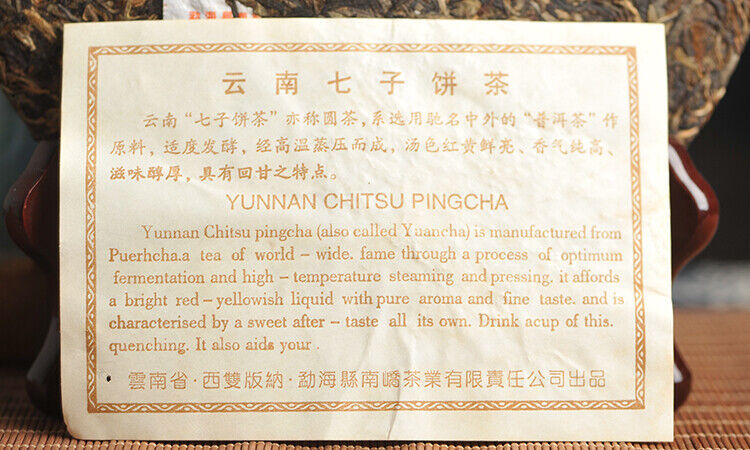 云南七子饼茶
云南“七子饼茶”亦称圆茶，系选用驰名中外的“普洱茶”作
原料，适度发酵，经高温蒸压而成，汤色红黄鲜亮、香气纯高、
滋味醇厚，具有回甘之特点。
YUNNAN CHITSU PINGCHA
Yunnan Chitsu pingcha (also called Yuancha) is manufactured from
Puerhcha.a tea of world – wide. fame through a process of optimum
fermentation and high – temperature steaming and pressing. it affords
a bright red – yellowish liquid with pure aroma and fine taste. and is
characterised by a sweet after – taste all its own. Drink acup of this.
quenching. It also aids your .
雲南省·西雙版納·勐海縣南嶠茶業有限責任公司出品